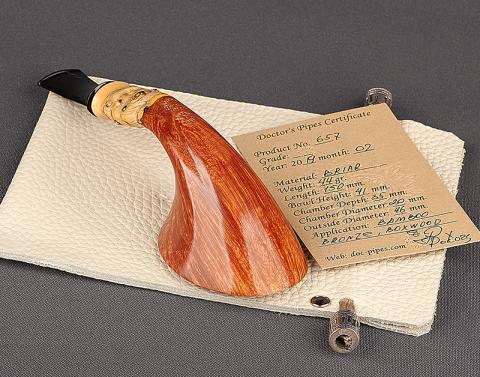 Doctor's Pipes Certificate
Product No. 657
Grade: —
Year: 2019 month: 02
Material: BRIAR
Weight: 44 gr.
Length: 150 mm.
Bowl Height: 41 mm.
Chamber Depth: 35 mm.
Chamber Diameter: 20 mm.
Outside Diameter: 46 mm.
Application: BAMBOO
BRONZE, BOXWOOD
Web: doc-pipes.com